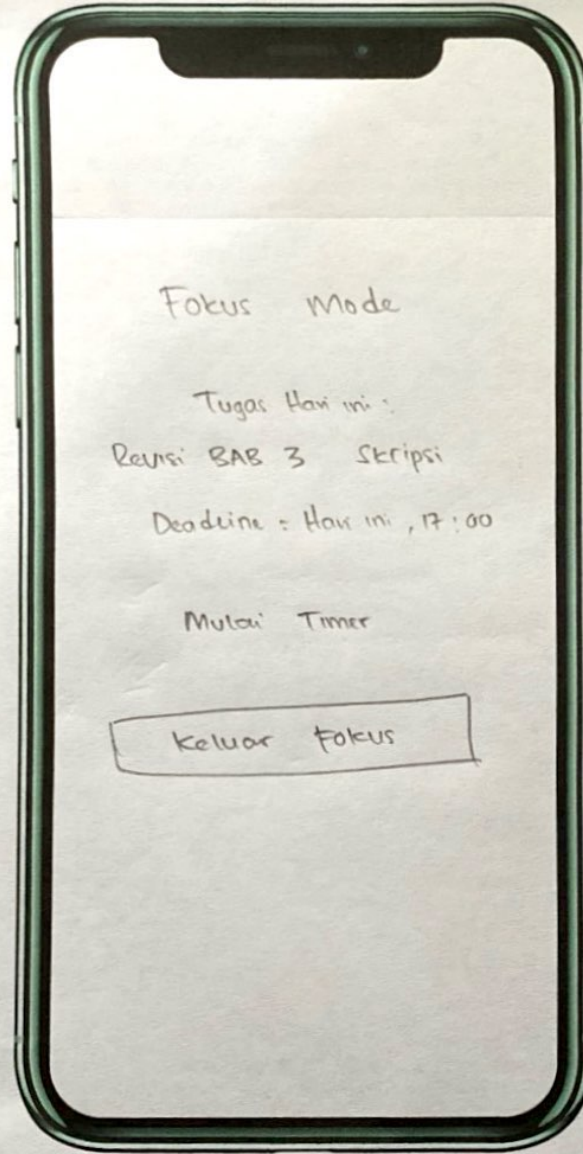 Fokus Mode
Tugas Hari ini :
Revisi BAB 3 Skripsi
Deadline : Hari ini, 17:00
Mulai Timer
Keluar Fokus